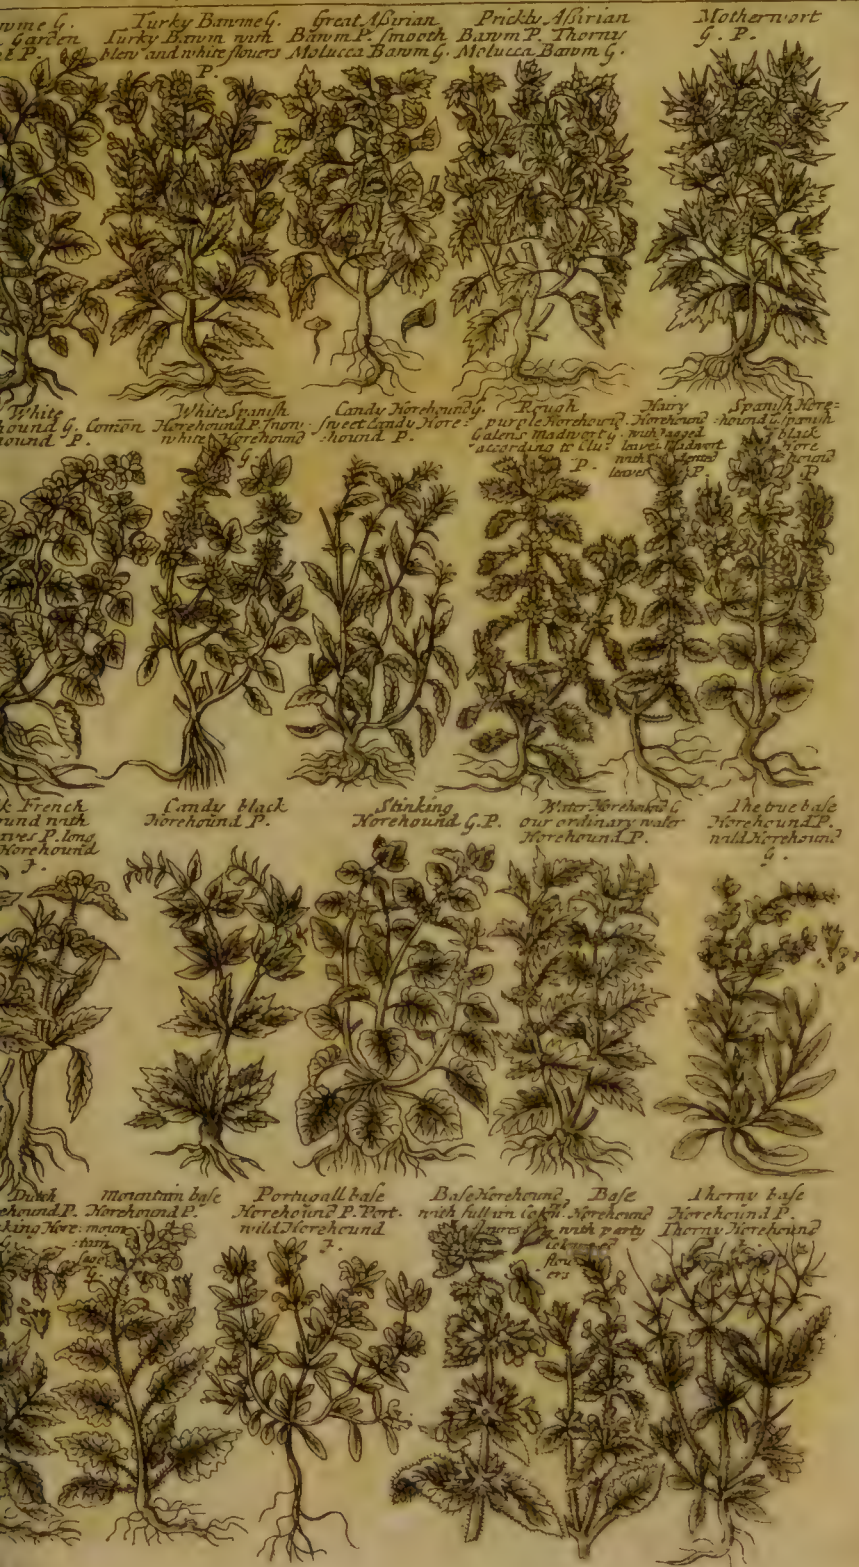 wme G.
Garden
P.
Turky Bawme G.
Turky Bawm with
blew and white flowers
P.
Great Aſsirian
Bawm P. ſmooth
Molucca Bawm G.
Prickly Aſsirian
Bawm P. Thorny
Molucca Bawm G.
Motherwort
G. P.
White
hound G. Comōn
hound P.
White Spanish
Horehound P. ſnow
white Horehound
G.
Candy Horehound G.
ſweet Candy Hore=
hound P.
Rough
purple Horehound.
Galens Madwort G.
according to Clu:
P.
Hairy
Horehound
with Jagged
leaves Madwort
with
leaves P.
Spanish Hore=
hound G. Spanish
black
Hore
hound
P
k French
und with
aves P. long
Horehound
J.
Candy black
Horehound P.
Stinking
Horehound G. P.
Water Horehound G
our ordinary water
Horehound P.
The true baſe
Horehound P.
wild Horehound
G.
Dutch
ehound P.
king Hore:
Mountain baſe
Horehound P.
moun
:tain
ſage
G.
Portugall baſe
Horehound P. Port.
wild Horehound
J.
Baſe Horehound
with
Baſe
Horehound
with party
flow
ers
Thorny baſe
Horehound P.
Thorny Horehound